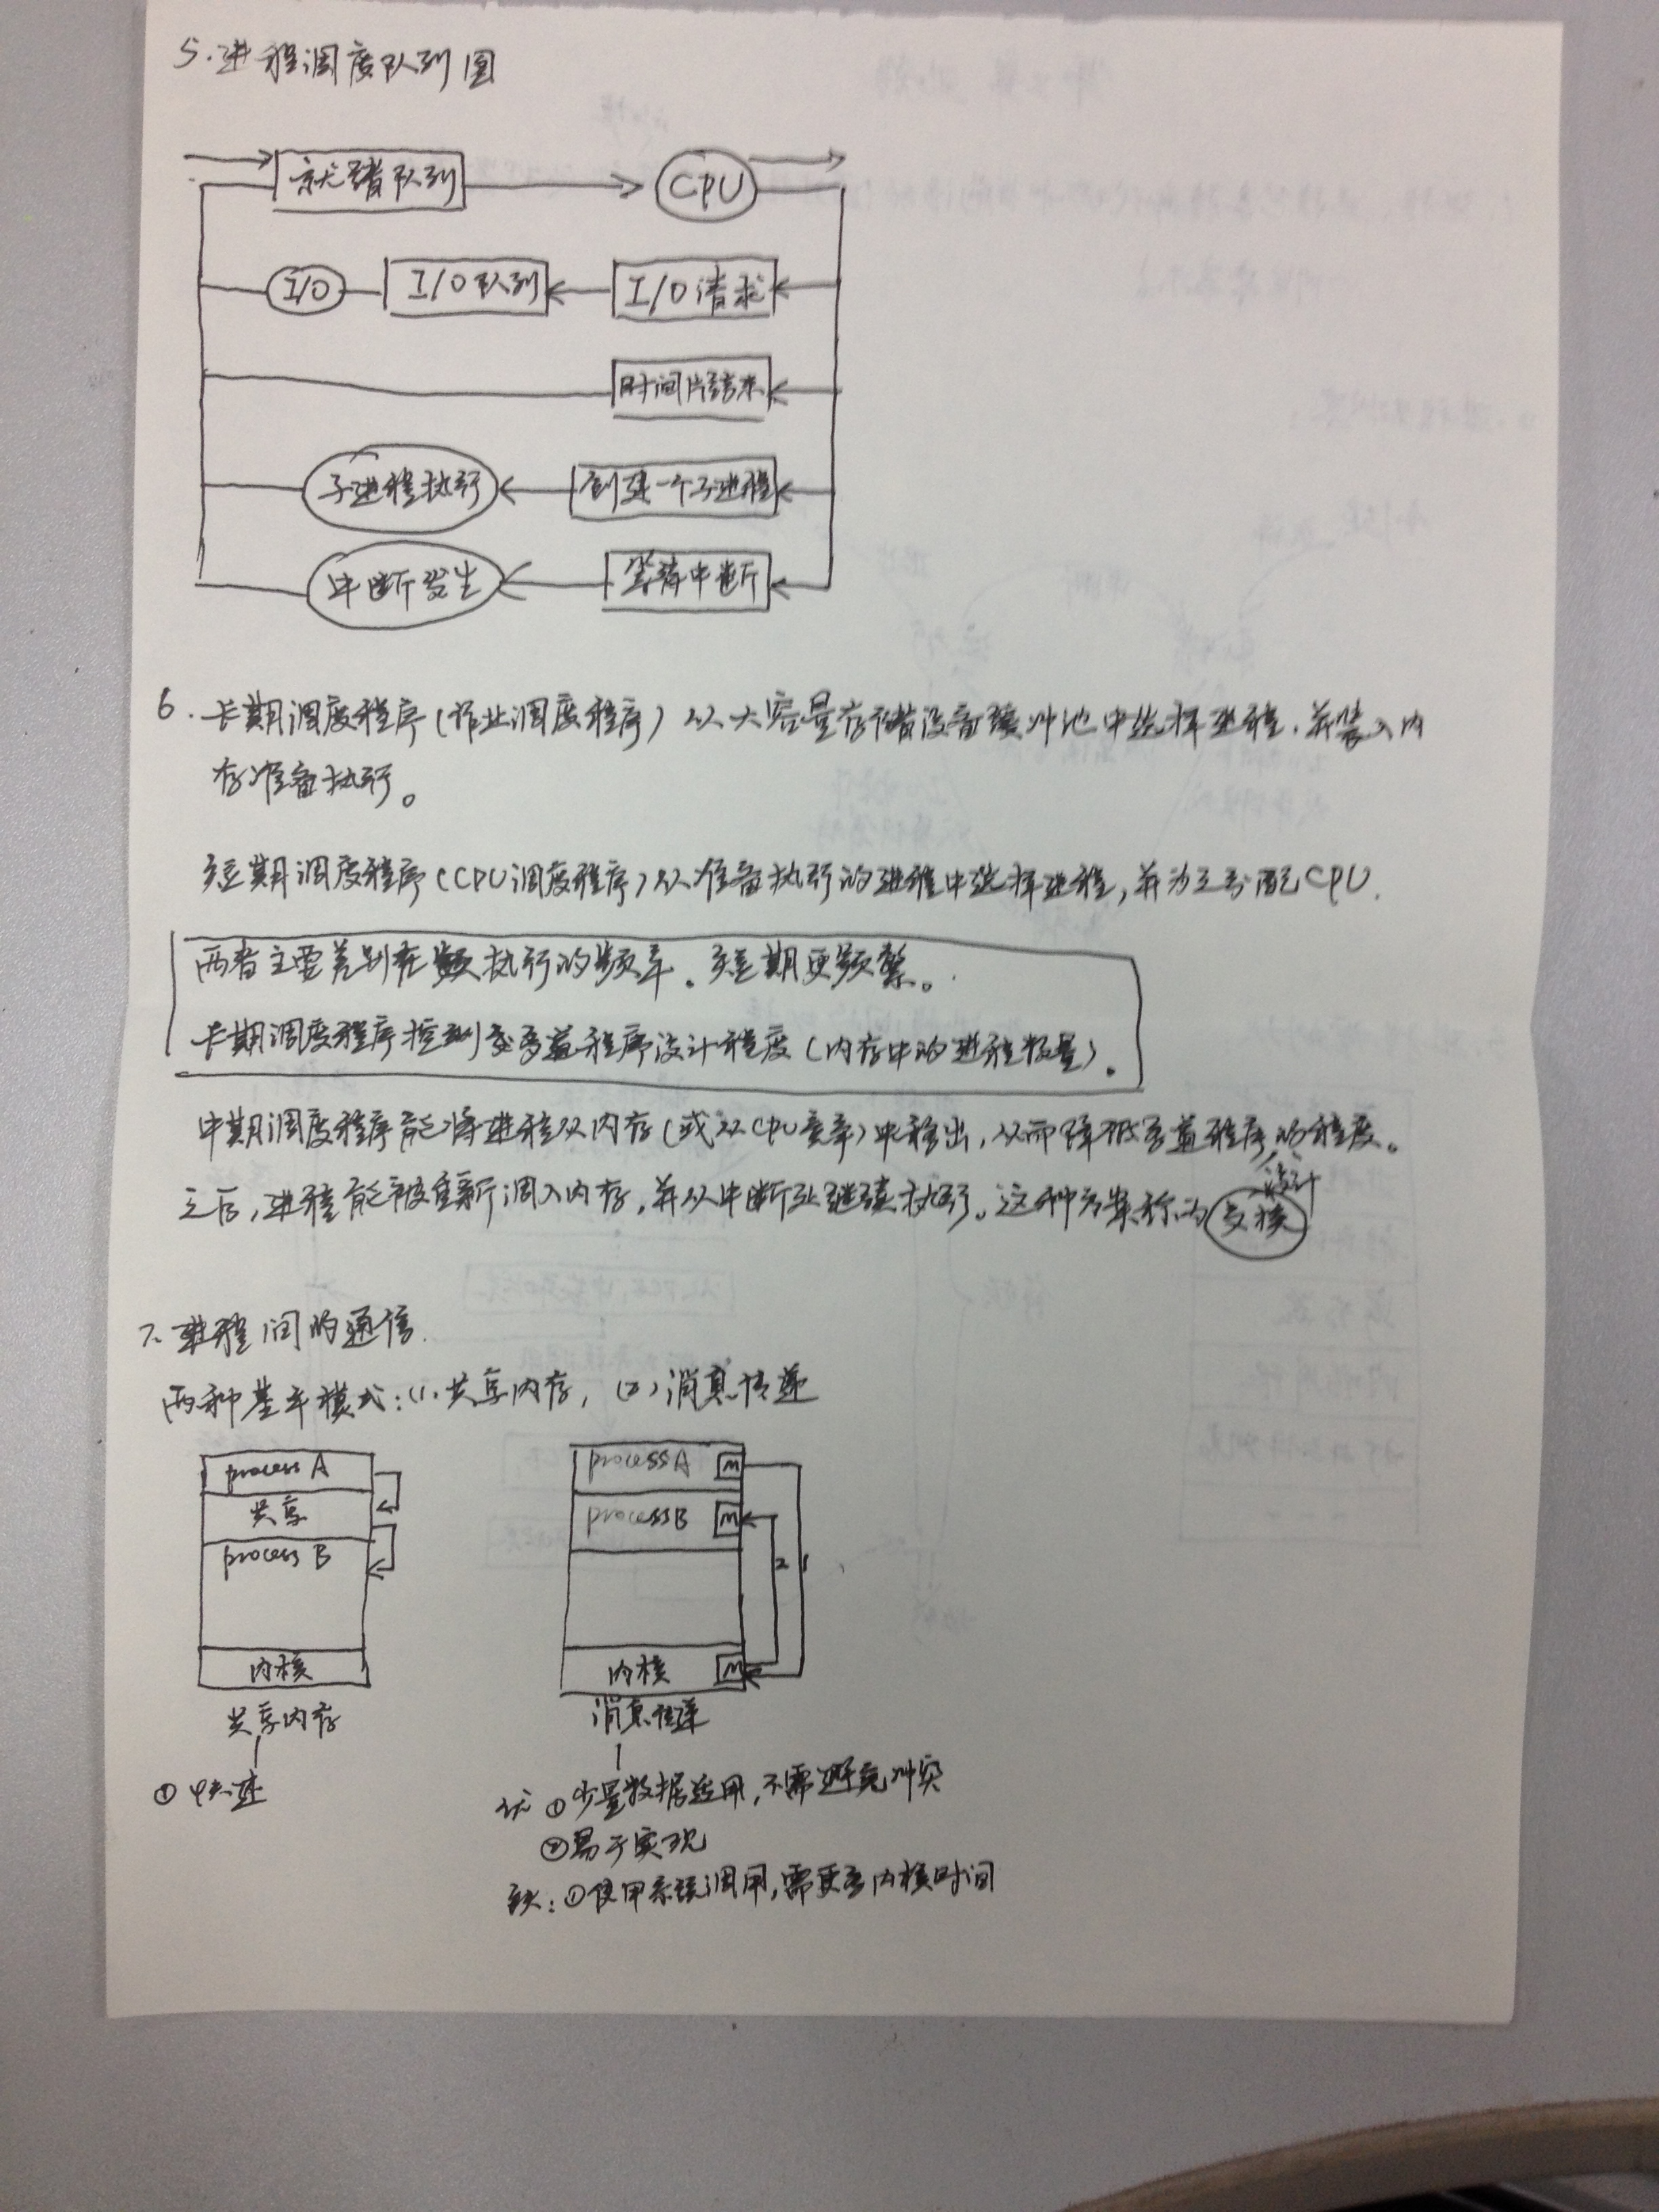 5.进程调度队列图
就绪队列 CPU
I/O I/O队列 I/O请求
时间片结束
子进程执行 创建一个子进程
中断发生 等待中断
6.长期调度程序(作业调度程序)从大容量存储设备缓冲池中选择进程,并装入内
存准备执行。
短期调度程序(CPU调度程序)从准备执行的进程中选择进程,并为之分配CPU.
两者主要差别在执行的频率。短期更频繁。
长期调度程序控制多道程序设计程度(内存中的进程数量)。
中期调度程序能将进程从内存(或从CPU竞争)中移出,从而降低多道程序设计的程度。
之后,进程能被重新调入内存,并从中断处继续执行。这种方案称为交换
7.进程间的通信.
两种基本模式:(1)共享内存,(2)消息传递
process A
共享
process B
内核
共享内存
①快速
process A M
process B M
2 1
内核 M
消息传递
优 ①少量数据适用,不需避免冲突
②易于实现
缺:①使用系统调用,需更多内核时间